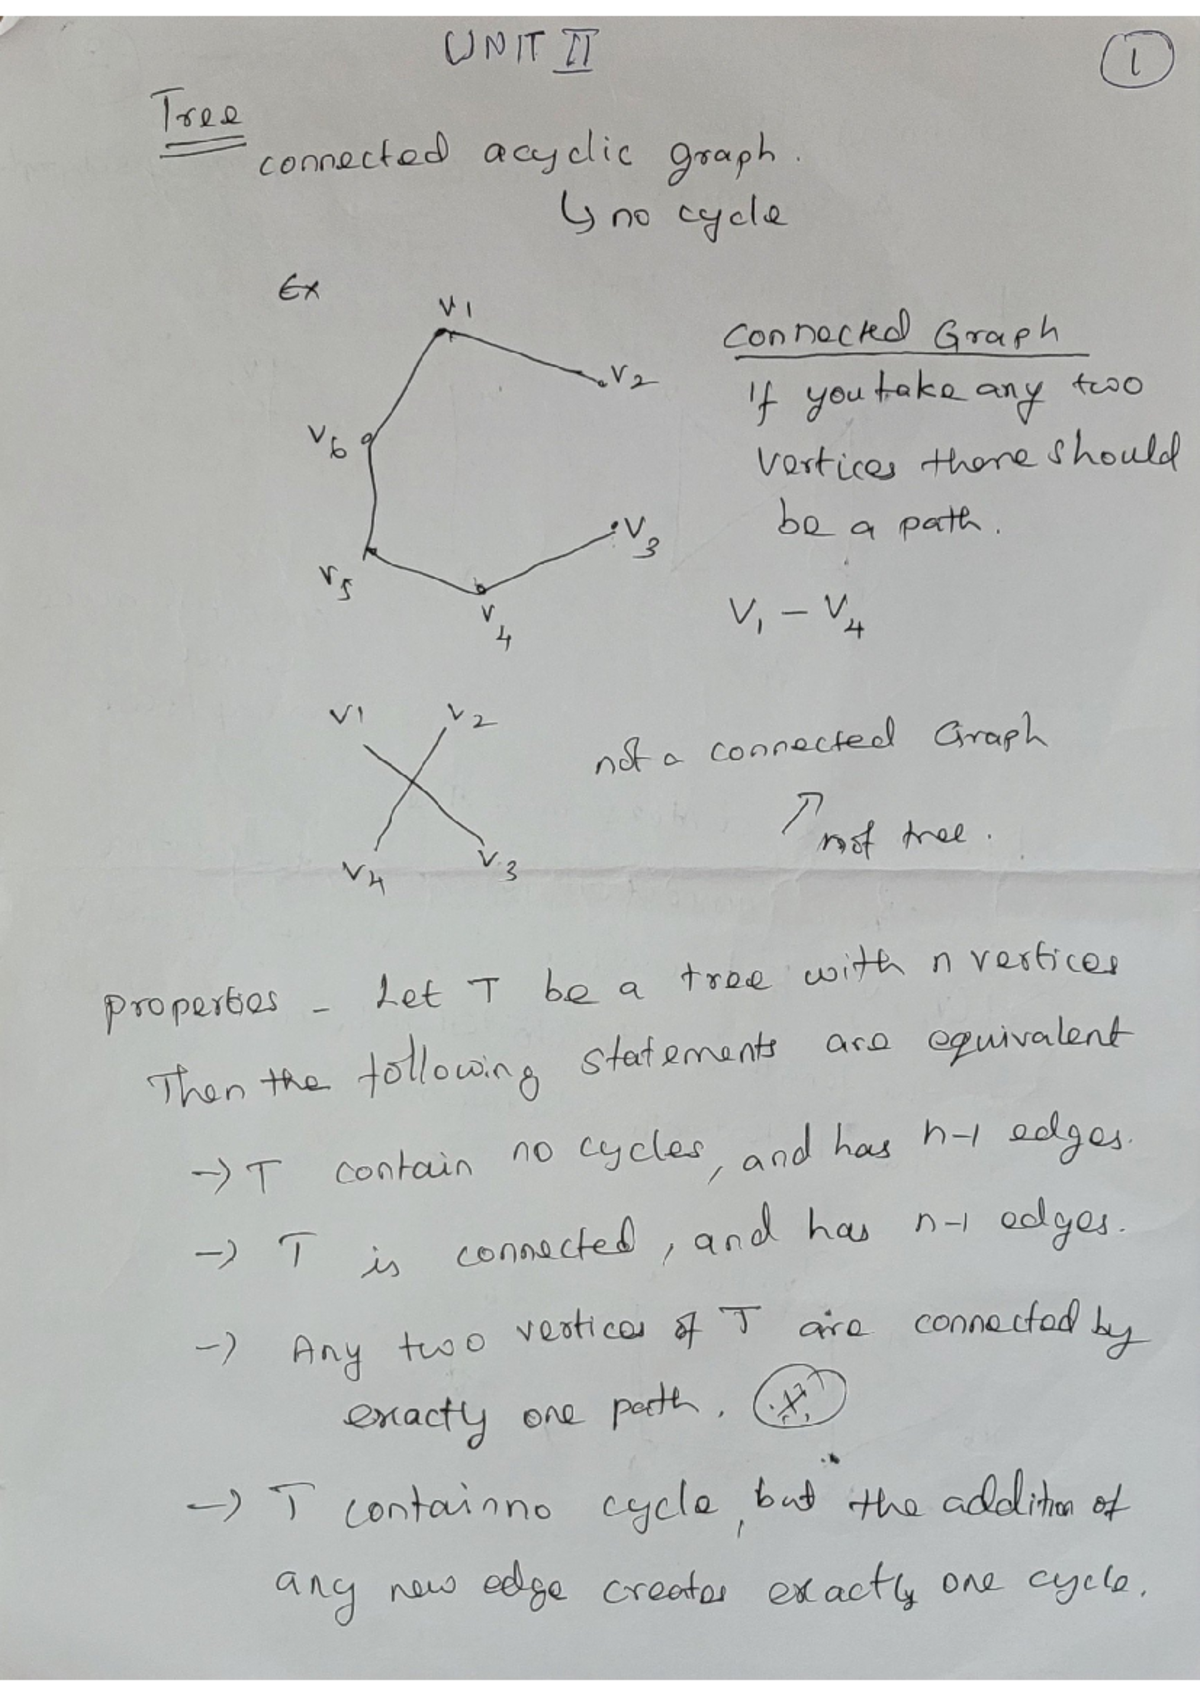 UNIT II
1
Tree
connected acyclic graph.
↳ no cycle
Ex
V1
V2
V6
V5
V4
V3
Connected Graph
If you take any two
vertices there should
be a path.
V1 – V4
V1 V2
V4 V3
not a connected Graph
↗ not tree.
properties – Let T be a tree with n vertices
Then the following statements are equivalent
→ T contain no cycles, and has n-1 edges.
→ T is connected, and has n-1 edges.
→ Any two vertices of T are connected by
exactly one path.
→ T contain no cycle, but the addition of
any new edge creates exactly one cycle.